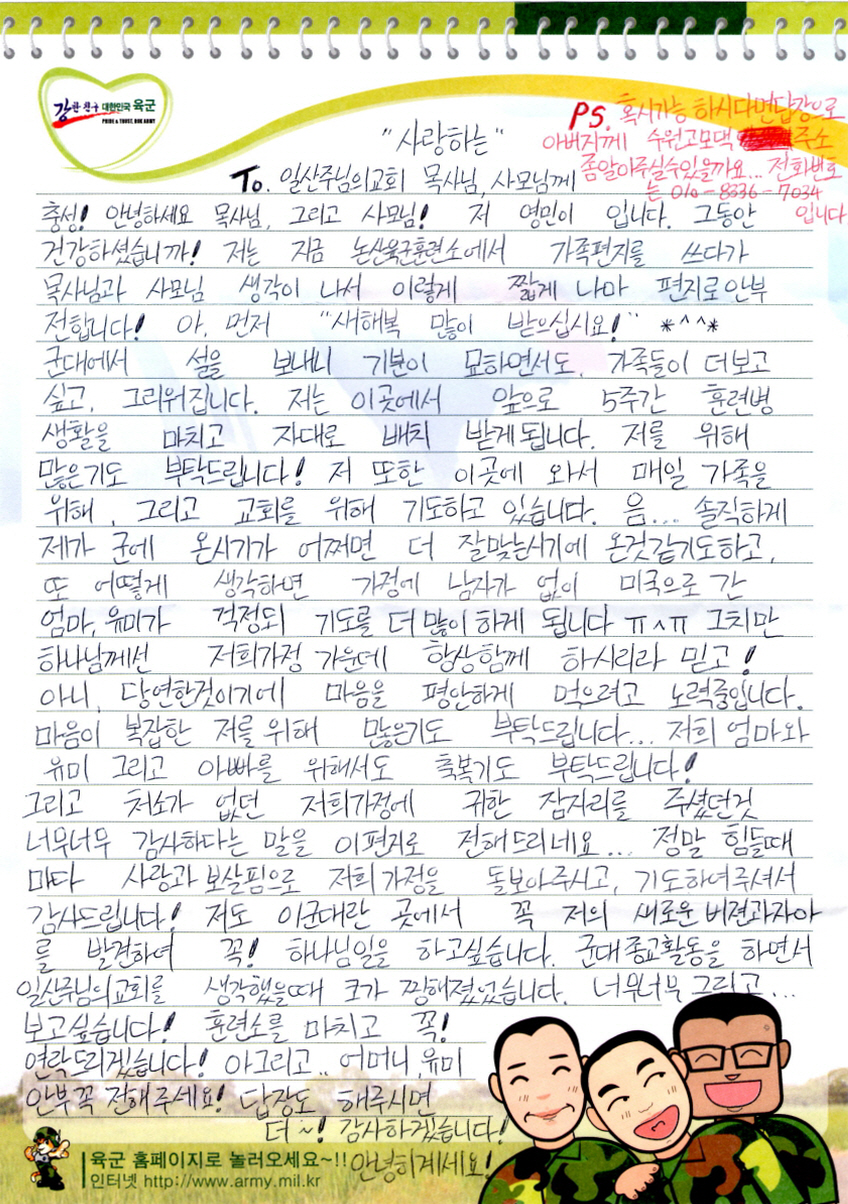 강한친구 대한민국 육군
PRIDE & TRUST, ROK ARMY
PS. 혹시가능 하시다면답장으로
아버지께 수원고모댁 주소
좀알아주실수있을까요... 전화번호
는 010-8336-7034
입니다
"사랑하는"
To. 일산주님의교회 목사님, 사모님께
충성! 안녕하세요 목사님, 그리고 사모님! 저 영민이 입니다. 그동안
건강하셨습니까! 저는 지금 논산육군훈련소에서 가족편지를 쓰다가
목사님과 사모님 생각이 나서 이렇게 짧게 나마 편지로안부
전합니다! 아, 먼저 "새해복 많이 받으십시요!" *^^*
군대에서 설을 보내니 기분이 묘하면서도, 가족들이 더보고
싶고, 그리워집니다. 저는 이곳에서 앞으로 5주간 훈련병
생활을 마치고 자대로 배치 받게됩니다. 저를 위해
많은기도 부탁드립니다! 저 또한 이곳에 와서 매일 가족을
위해, 그리고 교회를 위해 기도하고 있습니다. 음... 솔직하게
제가 군에 온시기가 어쩌면 더 잘맞는시기에 온것같기도하고,
또 어떻게 생각하면 가정에 남자가 없이 미국으로 간
엄마, 유미가 걱정되 기도를 더많이하게 됩니다 ㅠ^ㅠ 그치만
하나님께선 저희가정 가운데 항상함께 하시리라 믿고!
아니, 당연한것이기에 마음을 평안하게 먹으려고 노력중입니다.
마음이 복잡한 저를위해 많은기도 부탁드립니다... 저희 엄마와
유미 그리고 아빠를 위해서도 축복기도 부탁드립니다!
그리고 처소가 없던 저희가정에 귀한 잠자리를 주셨던것
너무너무 감사하다는 말을 이편지로 전해드리네요... 정말 힘들때
마다 사랑과보살핌으로 저희가정을 돌보아주시고, 기도하여주셔서
감사드립니다! 저도 이군대란 곳에서 꼭 저의 새로운비젼과자아
를 발견하여 꼭! 하나님일을 하고싶습니다. 군대종교활동을 하면서
일산주님의교회를 생각했을때 코가 찡해졌었습니다. 너무너무 그리고...
보고싶습니다! 훈련소를 마치고 꼭!
연락드리겠습니다! 아그리고.. 어머니,유미
안부꼭 전해주세요! 답장도 해주시면
더~! 감사하겠습니다!
안녕히계세요!
육군 홈페이지로 놀러오세요~!!
인터넷 http://www.army.mil.kr